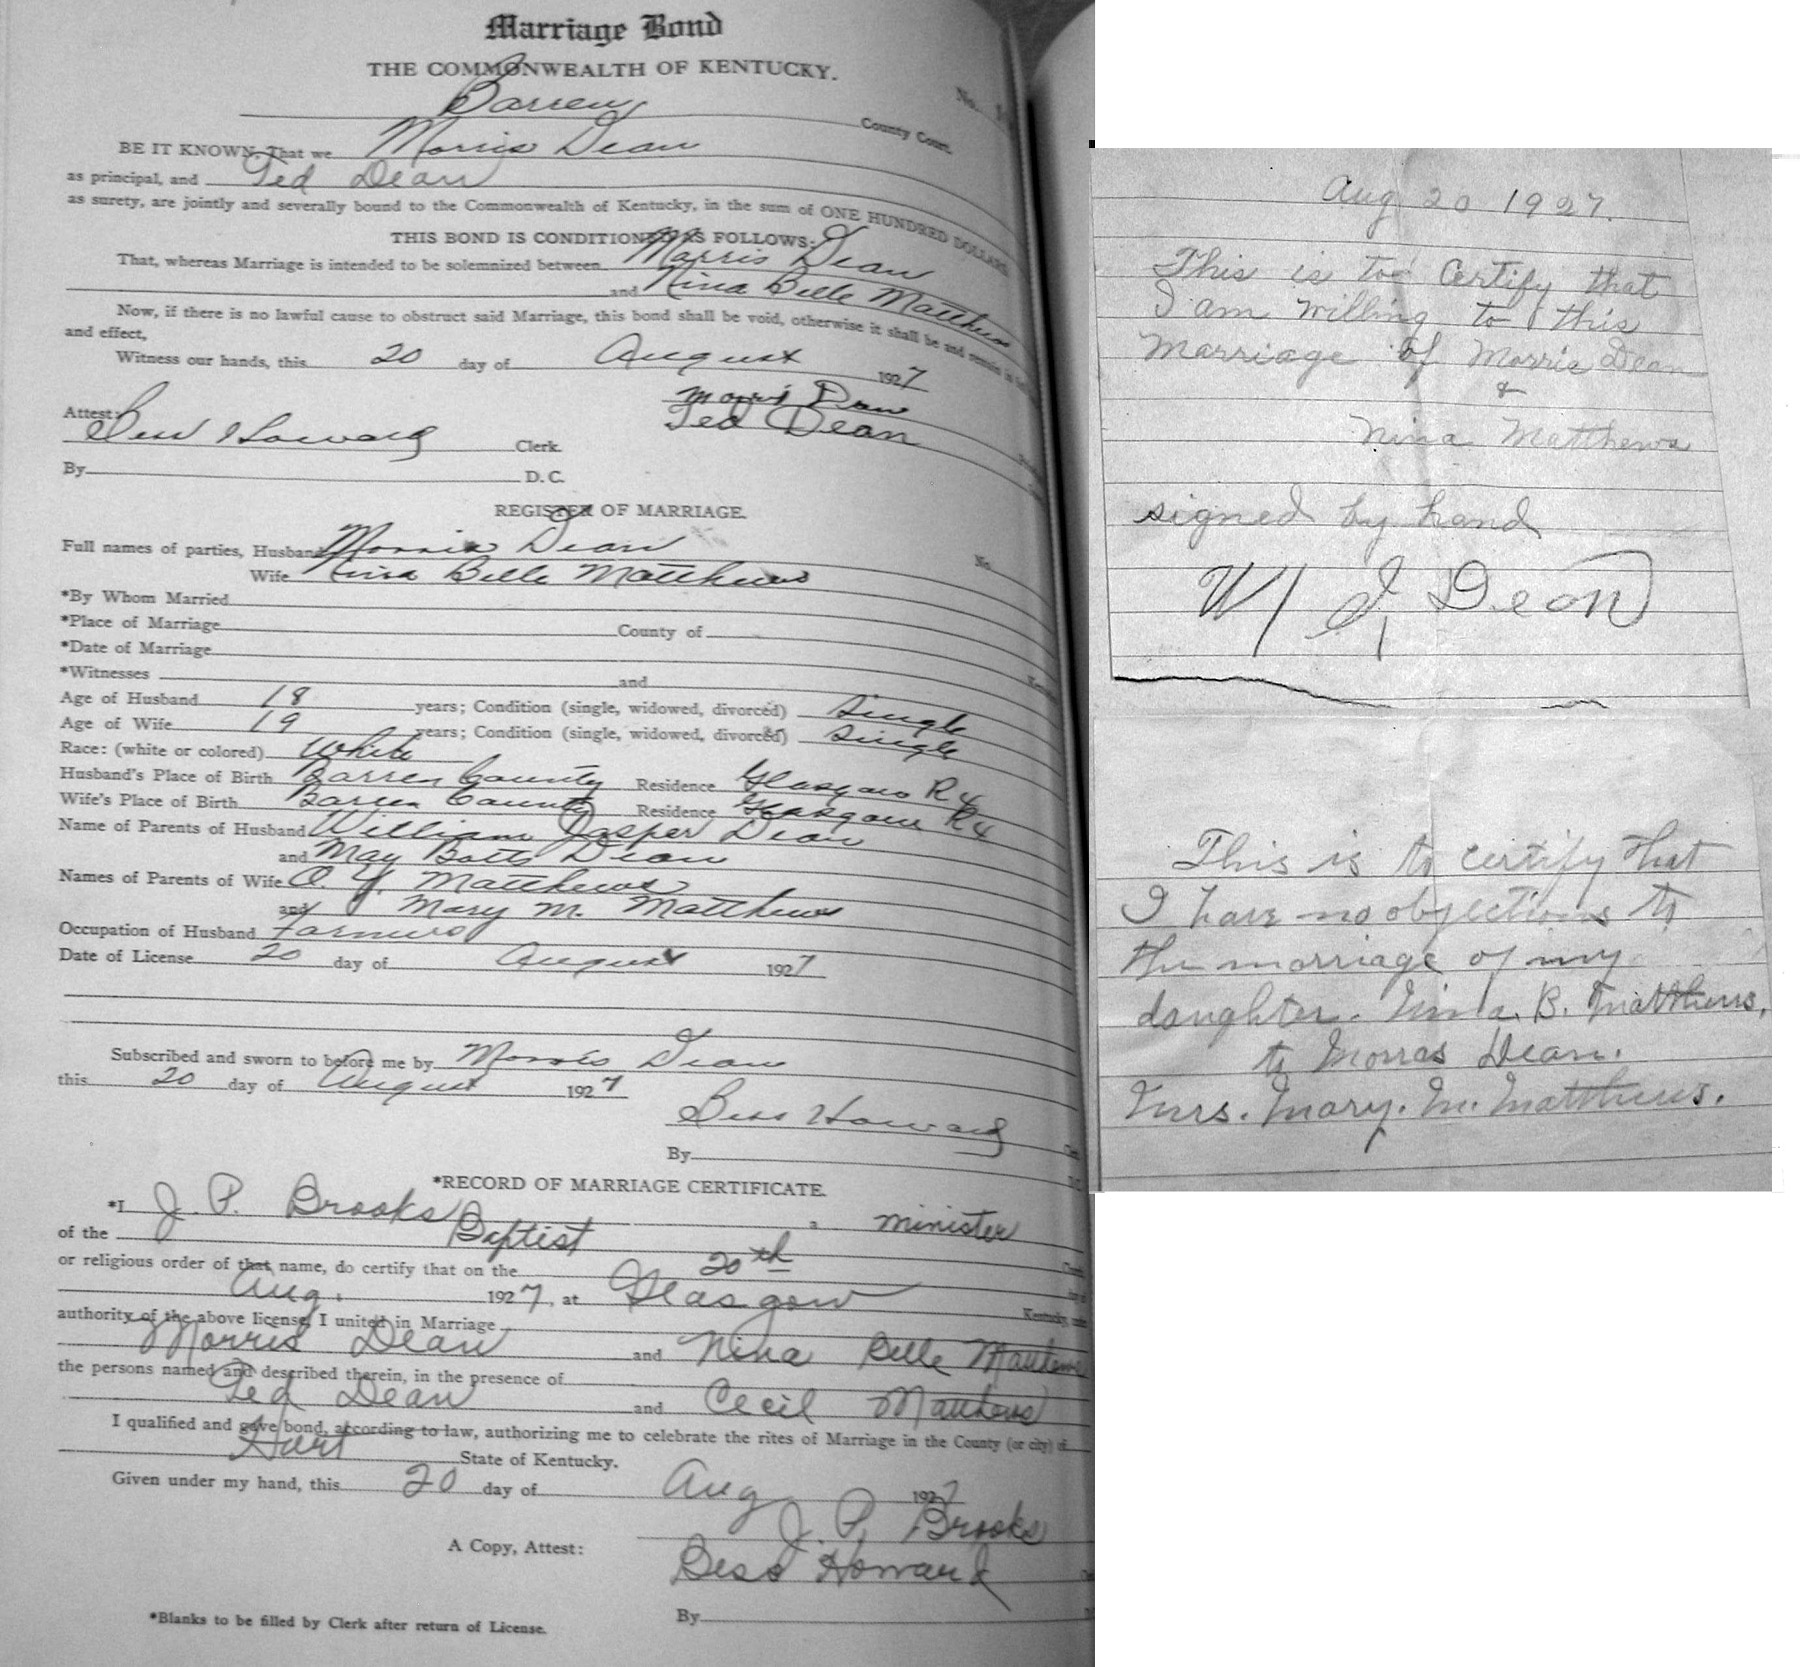 Marriage Bond
THE COMMONWEALTH OF KENTUCKY.
No.
Barren County Court.
BE IT KNOWN, That we Morris Dean
as principal, and Ted Dean
as surety, are jointly and severally bound to the Commonwealth of Kentucky, in the sum of ONE HUNDRED DOLLARS
THIS BOND IS CONDITIONED AS FOLLOWS:
That, whereas Marriage is intended to be solemnized between Morris Dean
and Nina Belle Matthews
Now, if there is no lawful cause to obstruct said Marriage, this bond shall be void, otherwise it shall be and remain in
and effect,
Witness our hands, this 20 day of August 1927
Morris Dean
Attest: Ted Dean
Bess Howard Clerk.
By D. C.
REGISTER OF MARRIAGE.
No.
Full names of parties, Husband Morris Dean
Wife Nina Belle Matthews
*By Whom Married
*Place of Marriage County of
*Date of Marriage
*Witnesses and
Age of Husband 18 years; Condition (single, widowed, divorced) Single
Age of Wife 19 years; Condition (single, widowed, divorced) Single
Race: (white or colored) White
Husband's Place of Birth Barren County Residence Glasgow R4
Wife's Place of Birth Barren County Residence Glasgow R4
Name of Parents of Husband William Jasper Dean
and May Botts Dean
Names of Parents of Wife O. Y. Matthews
and Mary M. Matthews
Occupation of Husband Farmer
Date of License 20 day of August 1927
Subscribed and sworn to before me by Morris Dean
this 20 day of August 1927
Bess Howard
By
*RECORD OF MARRIAGE CERTIFICATE.
*I J. P. Brooks a minister
of the Baptist
or religious order of that name, do certify that on the 20th
Aug. 1927, at Glasgow Kentucky, under
authority of the above license, I united in Marriage
Morris Dean and Nina Belle Matthews
the persons named and described therein, in the presence of
Ted Dean and Cecil Matthews
I qualified and gave bond, according to law, authorizing me to celebrate the rites of Marriage in the County (or city) of
Hart State of Kentucky.
Given under my hand, this 20 day of Aug 1927
J. P. Brooks
A Copy, Attest: Bess Howard
By
*Blanks to be filled by Clerk after return of License.
Aug 20 1927.
This is to Certify that
I am willing to this
Marriage of Morris Dean
&
Nina Matthews
signed by hand
W J Dean
This is to certify that
I have no objections to
the marriage of my
daughter. Nina. B. Matthews.
to Morras Dean.
Mrs. Mary. M. Matthews.